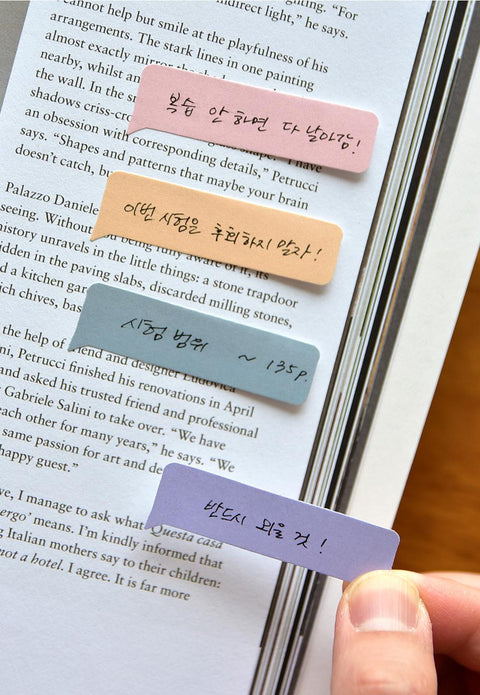 cannot help but smile at the playfulness of his
arrangements. The stark lines in one painting
almost exactly mirror the
nearby, whilst an
the wall. In the
shadows criss-cro
an obsession with corresponding details,” Petrucci
says. “Shapes and patterns that maybe your brain
doesn’t catch, bu
복습 안 하면 다 날아감!
Palazzo Daniele
seeing. Without being
history unravels in the little things: a stone trapdoor
idden in the paving slabs, discarded milling stones,
d a kitchen gar
ich chives, bas
이번 시험은 후회하지 말자!
시험 범위 ~ 135p.
the help of friend and designer Ludovica
ni, Petrucci finished his renovations in April
and asked his trusted friend and professional
Gabriele Salini to take over. “We have
each other for many years,” he says. “We
same passion for art and de
happy guest.”
반드시 외울 것!
ve, I manage to ask what ‘Questa casa
ergo’ means. I’m kindly informed that
g Italian mothers say to their children:
not a hotel. I agree. It is far more